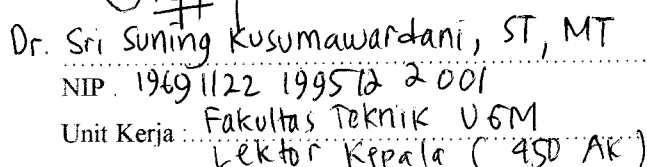 Dr. Sri Suning Kusumawardani, ST, MT
NIP. 19691122 199512 2 001
Unit Kerja : Fakultas Teknik UGM
Lektor Kepala (450 AK)